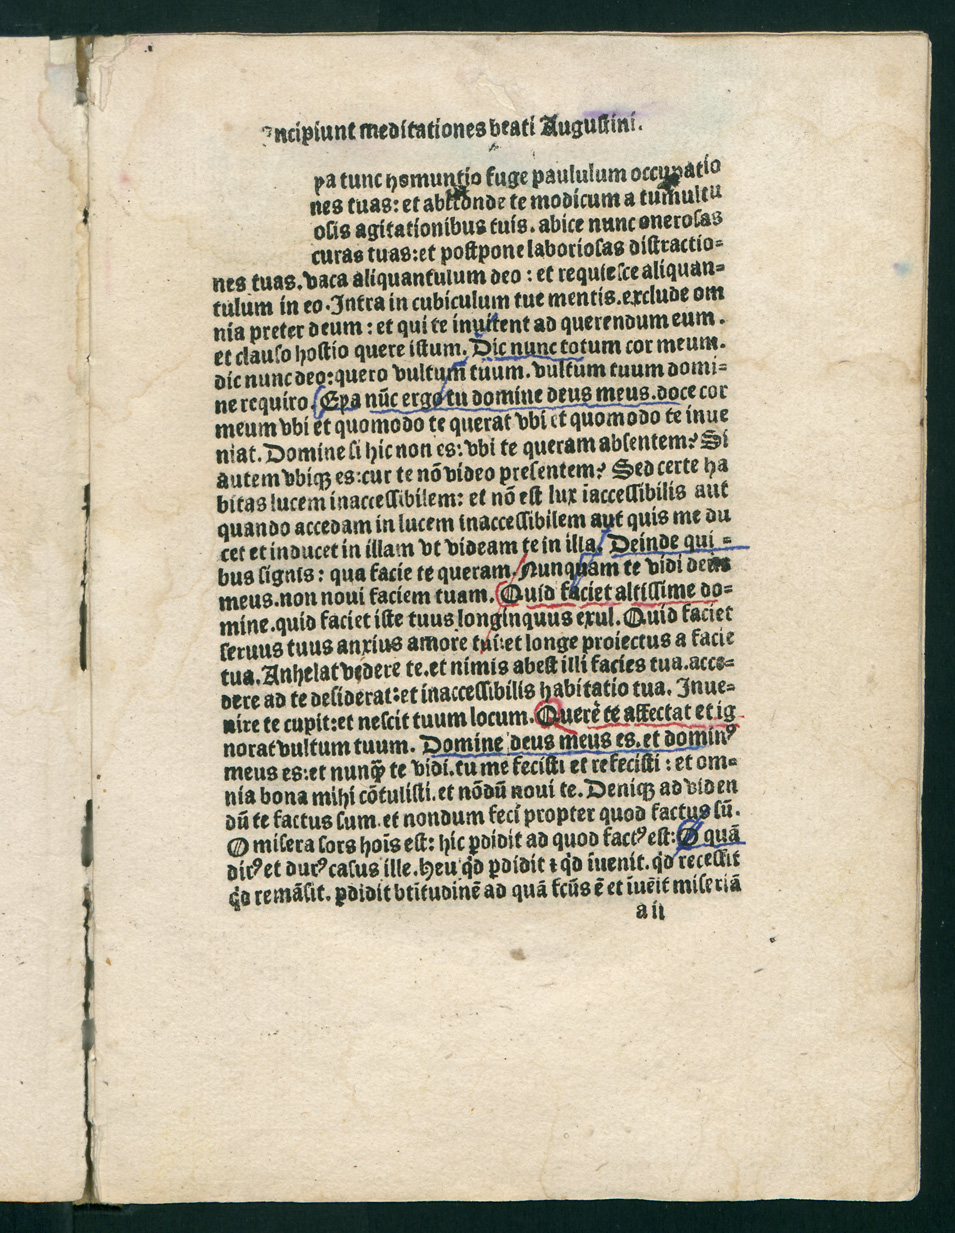 Incipiunt meditationes beati Augustini.
ya tunc homuntio fuge paululum occupatio
nes tuas: et abscondete modicum a tumultu
osis agitationibus tuis. abice nunc onerosas
curas tuas: et postpone laboriosas distractio-
nes tuas. vaca aliquantulum deo : et requiesce aliquan-
tulum in eo. Intra in cubiculum tue mentis. exclude om
nia preter deum : et qui te inuitent ad querendum eum.
et clauso hostio quere istum. Dic nunc totum cor meum.
dic nunc deo: quero vultum tuum. vultum tuum domi-
ne requiro. Eya nūc ergo tu domine deus meus. doce cor
meum vbi et quomodo te querat vbi et quomodo te inue
niat. Domine si hic non es: vbi te queram absentem? Si
autem vbiqꝫ es: cur te nō video presentem? Sed certe ha
bitas lucem inaccessibilem: et nō est lux īaccessibilis aut
quando accedam in lucem inaccessibilem aut quis me du
cet et inducet in illam vt videam te in illa. Deinde qui-
bus signis: qua facie te queram. Nunquam te vidi deus
meus. non noui faciem tuam. Quid faciet altissime do-
mine. quid faciet iste tuus longinquus exul. Quid faciet
seruus tuus anxius amore tui: et longe proiectus a facie
tua. Anhelat videre te. et nimis abest illi facies tua. acce-
dere ad te desiderat: et inaccessibilis habitatio tua. Inue-
nire te cupit: et nescit tuum locum. Querere te affectat et ig
norat vultum tuum. Domine deus meus es. et dominꝰ
meus es: et nunqꝫ te vidi. tu me fecisti et refecisti : et om-
nia bona mihi cōtulisti. et nōdū noui te. Deniqꝫ ad viden
dū te factus sum. et nondum feci propter quod factus sū.
O misera sors hoīs est: hic ꝑdidit ad quod factꝰ est: O quā
dirꝰ et durꝰ casus ille. Heu qd̄ ꝑdidit ⁊ qd̄ īuenit. qd̄ recessit
qd̄ remāsit. ꝑdidit btītudinē ad quā fcūs ē et īuēit miseriā
a ii